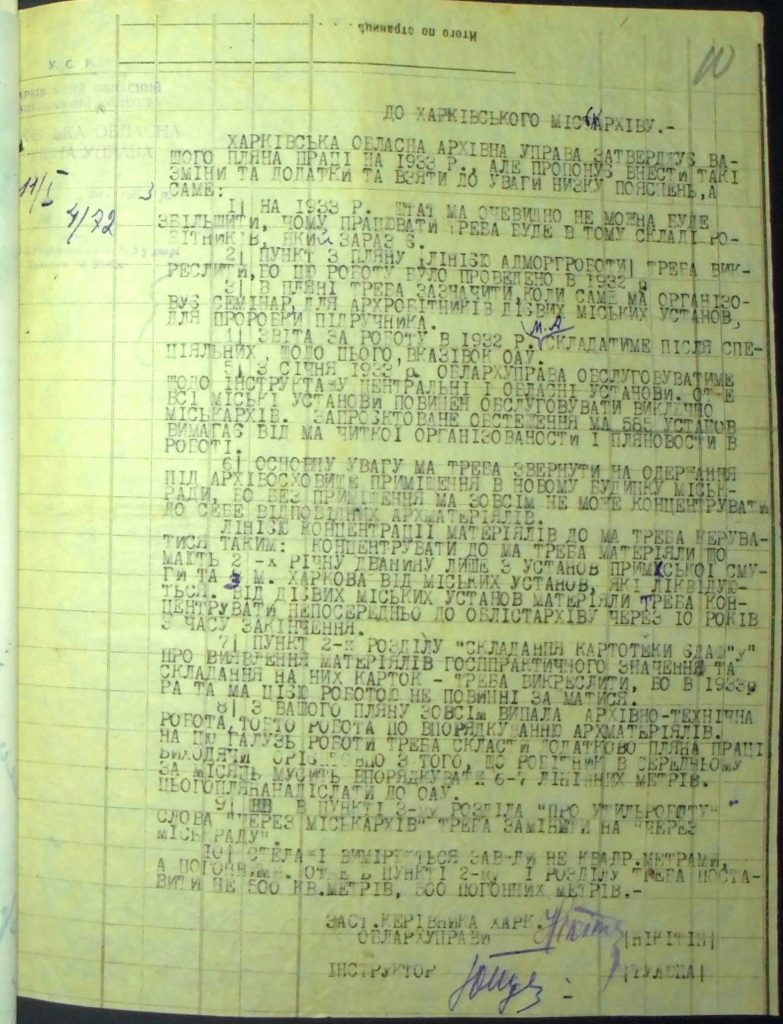 Итого по страниць
10
У. С. Р.
ДО ХАРКІВСЬКОГО МІСЬКАРХІВУ.-
ХАРКІВСЬКА ОБЛАСНА АРХІВНА УПРАВА ЗАТВЕРДЖУЄ ВА-
ШОГО ПЛЯНА ПРАЦІ НА 1933 Р., АЛЕ ПРОПОНУЄ ВНЕСТИ ТАКІ
ЗМІНИ ТА ДОДАТКИ ТА ВЗЯТИ ДО УВАГИ НИЗКУ ПОЯСНЕНЬ, А
САМЕ:
11/І 3
4/72
1| НА 1933 Р. ШТАТ МА ОЧЕВИДНО НЕ МОЖНА БУДЕ
ЗБІЛЬШИТИ, ЧОМУ ПРАЦЮВАТИ ТРЕБА БУДЕ В ТОМУ СКЛАДІ РО-
БІТНИКІВ, ЯКИЙ ЗАРАЗ Є.
2| ПУНКТ З ПЛЯНУ |ЛІНІЄЮ АДМОРГРОБОТИ| ТРЕБА ВИК-
РЕСЛИТИ, БО ЦЮ РОБОТУ БУЛО ПРОВЕДЕНО В 1932 Р
3| В ПЛЯНІ ТРЕБА ЗАЗНАЧИТИ, КОЛИ САМЕ МА ОРГАНІЗО-
ВУЄ СЕМІНАР ДЛЯ АРХРОБІТНИКІВ ДІЄВИХ МІСЬКИХ УСТАНОВ,
ДЛЯ ПРОРОБКИ ПІДРУЧНИКА.
4| ЗВІТА ЗА РОБОТУ В 1932 Р. М.А СКЛАДАТИМЕ ПІСЛЯ СПЕ-
ЦІЯЛЬНИХ, ЩОДО ЦЬОГО, ВКАЗІВОК ОАУ.
5| З СІЧНЯ 1933 р. ОБЛАРХУПРАВА ОБСЛУГОВУВАТИМЕ
ЩОДО ІНСТРУКТАЖУ ЦЕНТРАЛЬНІ І ОБЛАСНІ УСТАНОВИ. ОТ-Е
ВСІ МІСЬКІ УСТАНОВИ ПОВИНЕН ОБСЛУГОВУВАТИ ВИКЛЮЧНО
МІСЬКАРХІВ. ЗАПРОЄКТОВАНЕ ОБСТЕЖЕННЯ МА 585 УСТАНОВ
ВИМАГАЄ ВІД МА ЧИТКОЇ ОРГАНІЗОВАНОСТИ І ПЛЯНОВОСТИ В
РОБОТІ.
6| ОСНОВНУ УВАГУ МА ТРЕБА ЗВЕРНУТИ НА ОДЕРЖАННЯ
ПІД АРХІВОСХОВИЩЕ ПРИМІЩЕННЯ В НОВОМУ БУДИНКУ МІСЬК-
РАДИ, БО БЕЗ ПРИМІЩЕННЯ МА ЗОВСІМ НЕ МОЖЕ КОНЦЕНТРУВАТИ
ДО СЕБЕ ВІДПОВІДНИХ АРХМАТЕРІЯЛІВ.
ЛІНІЄЮ КОНЦЕНТРАЦІЇ МАТЕРІЯЛІВ ДО МА ТРЕБА КЕРУВА-
ТИСЯ ТАКИМ: КОНЦЕНТРУВАТИ ДО МА ТРЕБА МАТЕРІЯЛИ ЩО
МАЮТЬ 2 -Х РІЧНУ ДАВНИНУ ЛИШЕ З УСТАНОВ ПРИМІСЬКОЇ СМУ-
ГИ ТА З М. ХАРКОВА ВІД МІСЬКИХ УСТАНОВ, ЯКІ ЛІКВІДУЮ-
ТЬСЯ. ВІД ДІЄВИХ МІСЬКИХ УСТАНОВ МАТЕРІЯЛИ ТРЕБА КОН-
ЦЕНТРУВАТИ НЕПОСЕРЕДНЬО ДО ОБЛІСТАРХІВУ ЧЕРЕЗ 10 РОКІВ
З ЧАСУ ЗАКІНЧЕННЯ.
7| ПУНКТ 2-Й РОЗДІЛУ "СКЛАДАННЯ КАРТОТЕКИ ЄДАФ"У"
ПРО ВИЯВЛЕННЯ МАТЕРІЯЛІВ ГОСППРАКТИЧНОГО ЗНАЧЕННЯ ТА
СКЛАДАННЯ НА НИХ КАРТОК - ТРЕБА ВИКРЕСЛИТИ, БО В 1933р
РА ТА МА ЦІЄЮ РОБОТОЮ НЕ ПОВИННІ ЗА МАТИСЯ.
8| З ВАШОГО ПЛЯНУ ЗОВСІМ ВИПАЛА АРХІВНО-ТЕХНІЧНА
РОБОТА, ТОБТО РОБОТА ПО ВПОРЯДКУВАННЮ АРХМАТЕРІЯЛІВ.
НА ЦЮ ГАЛУЗЬ РОБОТИ ТРЕБА СКЛАСТИ ДОДАТКОВО ПЛЯНА ПРАЦІ
ВИХОДЯЧИ З ТОГО, ЩО РОБІТНИК В СЕРЕДНЬОМУ
ЗА МІСЯЦЬ МУСИТЬ ВПОРЯДКУВАТИ 6-7 ЛІНІЙНИХ МЕТРІВ.
ЦЬОГОПЛЯНАНАДІСЛАТИ ДО ОАУ.
9| В ПУНКТІ 3-МУ РОЗДІЛА "ПРО УТИЛЬРОБОТУ"
СЛОВА "ЧЕРЕЗ МІСЬКАРХІВ" ТРЕБА ЗАМІНИТИ НА "ЧЕРЕЗ
МІСЬКРАДУ".
10| СТЕЛА-І ВИМІРЮЮТЬСЯ ЗАВ-ДИ НЕ КВАДР.МЕТРАМИ,
А ПОГОННИМИ. ОТ-Е В ПУНКТІ 2-МУ І РОЗДІЛУ ТРЕБА ПОСТА-
ВИТИ НЕ 500 КВ.МЕТРІВ, 500 ПОГОННИХ МЕТРІВ.-
ЗАСТ.КЕРІВНИКА ХАРК.
ОБЛАРХУПРАВИ |НІКІТІН|
ІНСТРУКТОР